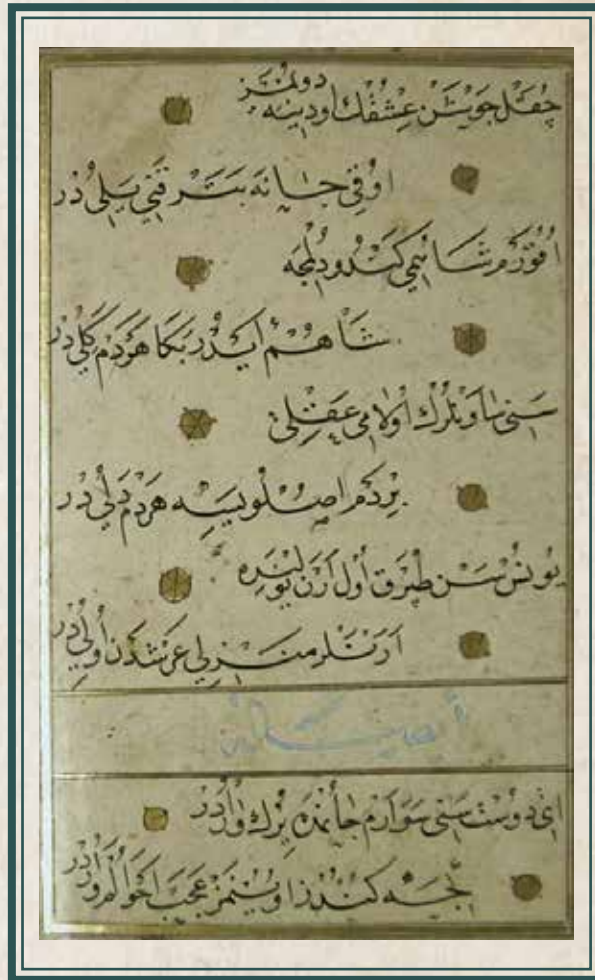 چقل جوشن عشقك اودينه دولنمز
اوقي جانه بتر قتي يلي در
اقورم شاهمي كندو دلجه
شاهم ايدر بكا هردم كلي در
سني سونلرك اولامي عقلي
بردم اصلويسه هردم دلي در
يونس سن طپرق اول ارن يولنده
ارنلر منزلي عرشدن اولي در
اي دوست سني سورم جانمده يرك واردر
كيجه كندز اويمنمز عجب احوالم واردر